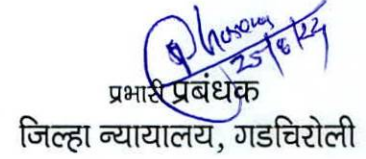 25/8/22
प्रभारी प्रबंधक
जिल्हा न्यायालय, गडचिरोली